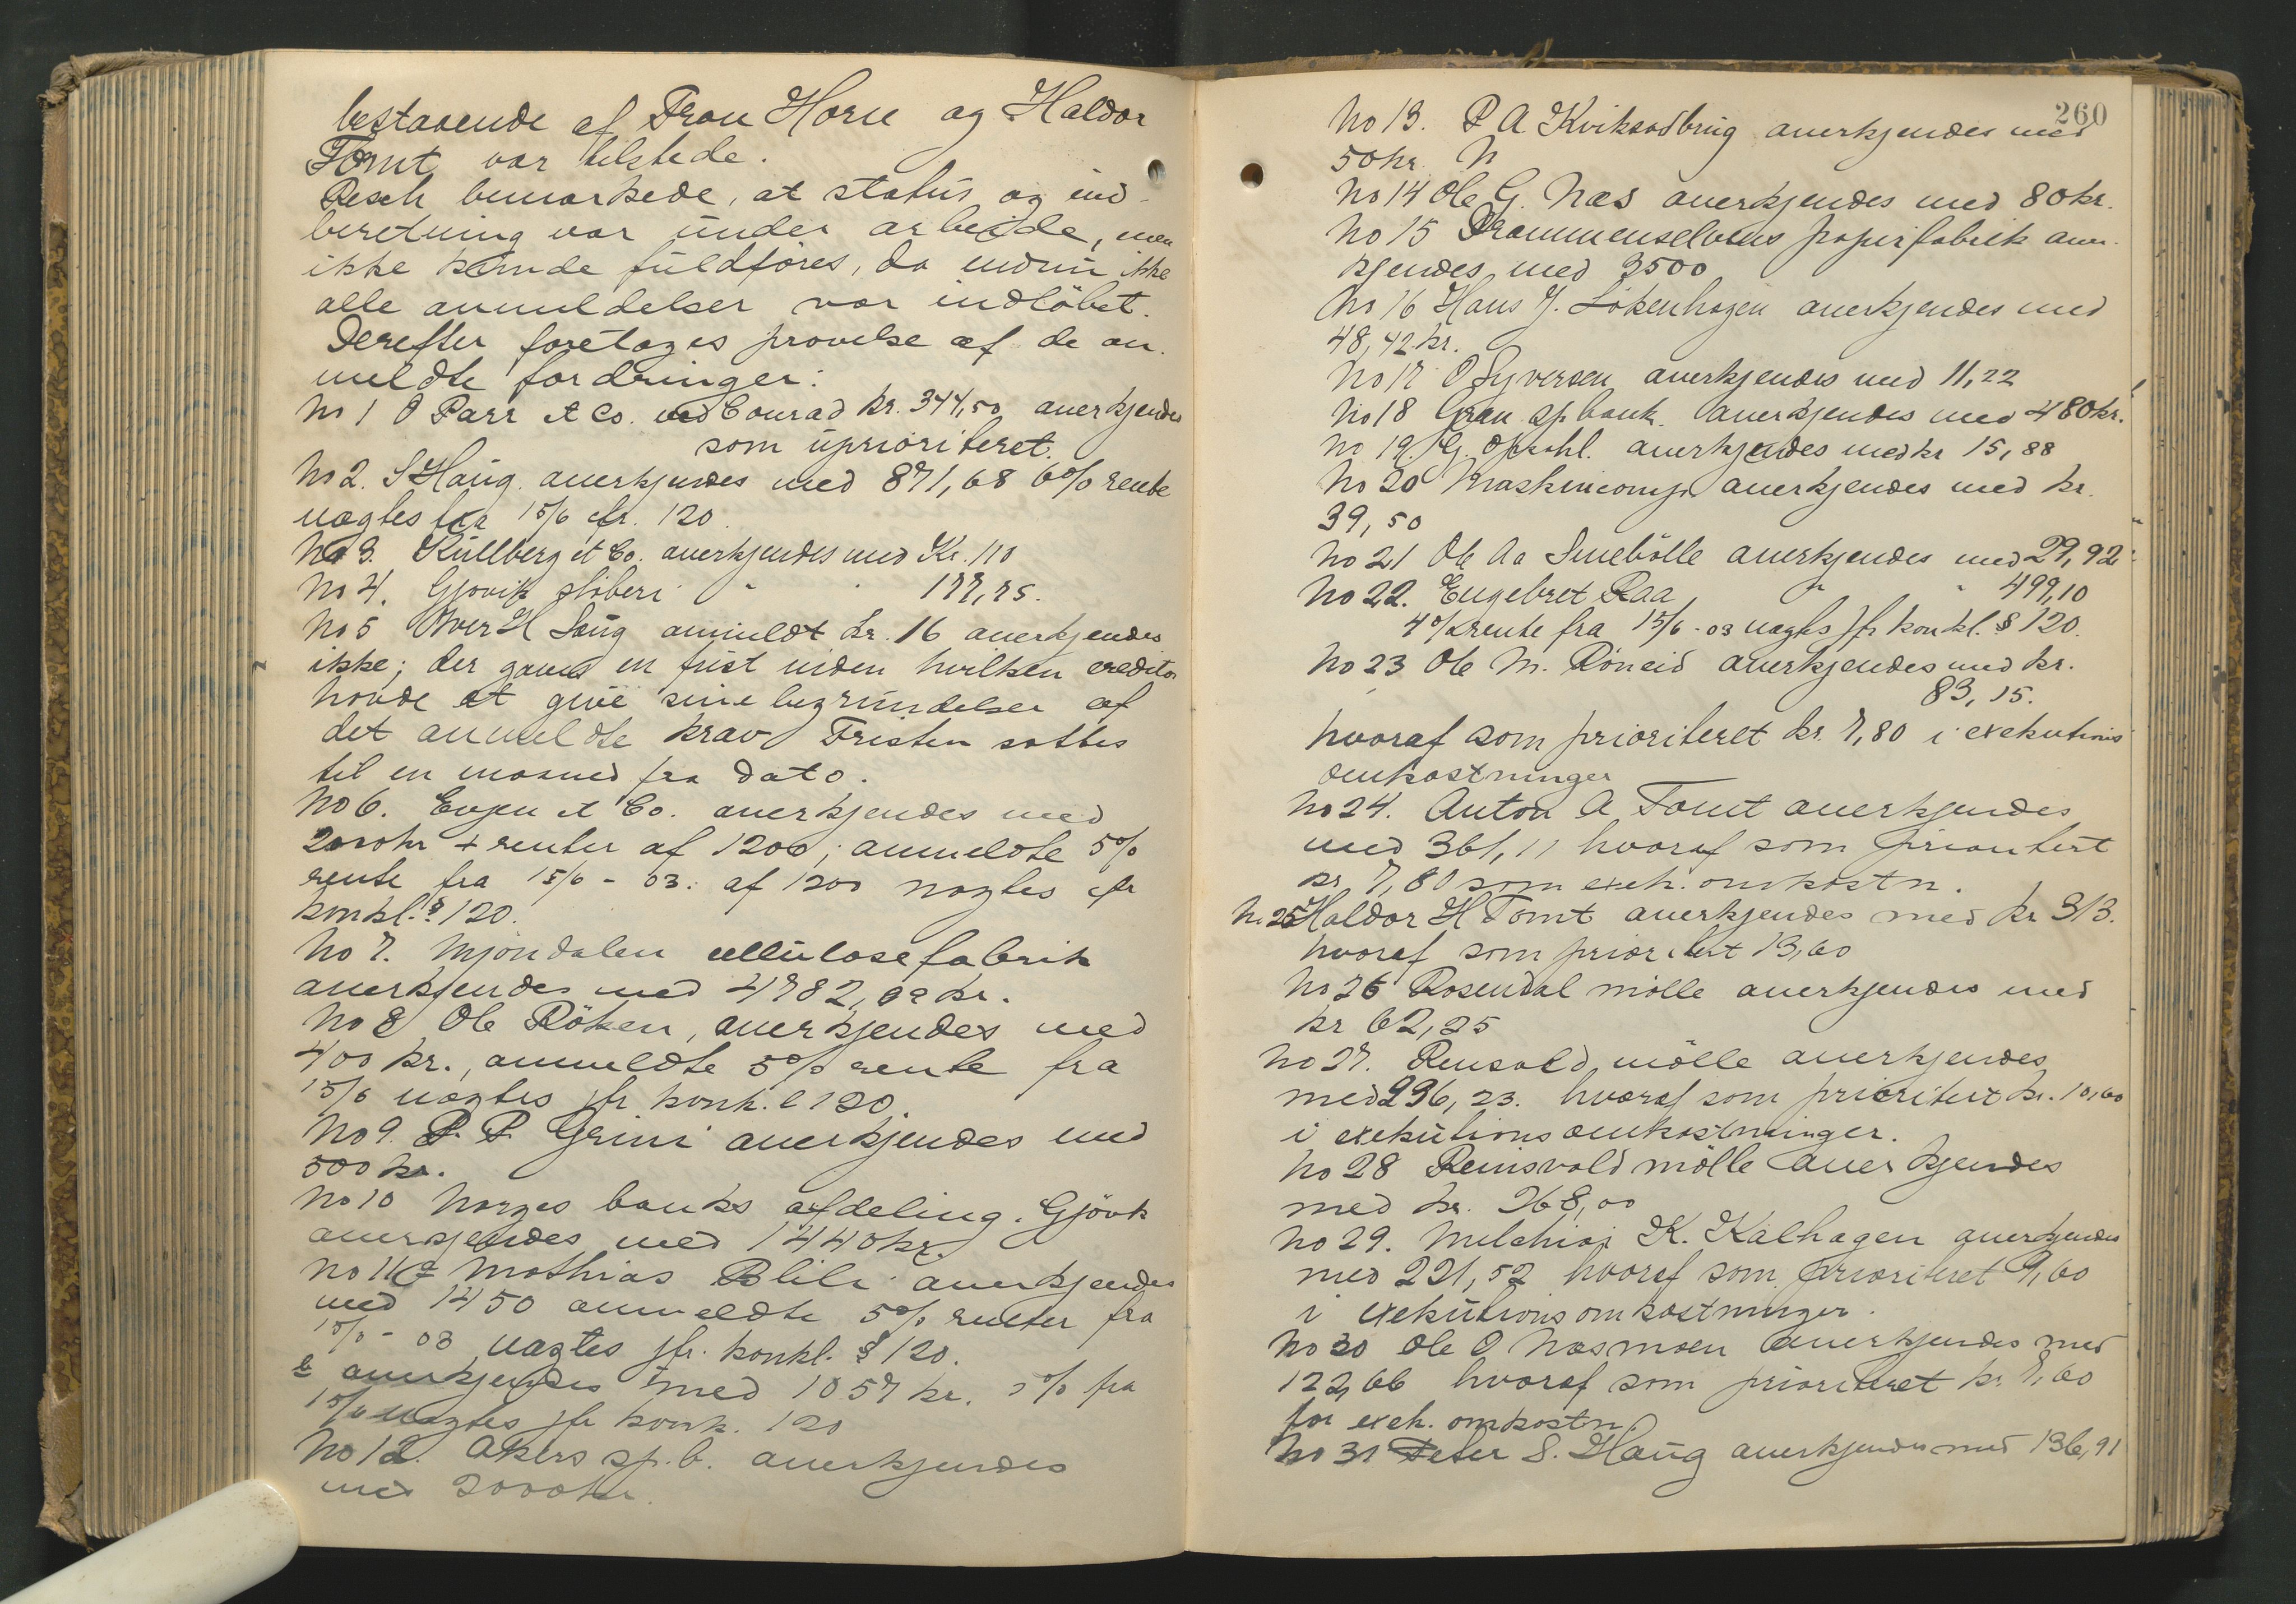 bestaaende af Iver Horn og Haldor
Tomt var tilstede.
Resch bemærkede, at status og ind-
beretning var under arbeide, men
ikke kunde fuldføres, da endnu ikke
alle anmeldelser var indløbet.
Derefter foretoges prøvelse af de an-
meldte fordringer:
No 1 O Parr et Co. ved Conrad kr. 344,50 anerkjendes
som uprioriteret.
No 2. S Haug. anerkjendes med 871,68 6% rente
nægtes fra 15/6 cfr. 120.
No 3. Kullberg et Co. anerkjendes med Kr. 110
No 4. Gjøvik sliberi " " 177,75.
No 5 Iver H Haug anmeldt kr. 16 anerkjendes
ikke; der gaves en frist inden hvilken creditor
havde at give sine begrundelser af
det anmeldte krav. Fristen sattes
til en maaned fra dato.
No 6. Evjen et Co. anerkjendes med
2000 kr + renter af 1200; anmeldte 5%
rente fra 15/6 - 03. af 1200 nægtes cfr
konkl. § 120.
No 7. Mjøndalen cellulosefabrik
anerkjendes med 4782,02 kr.
No 8 Ole Røken, anerkjendes med
400 kr., anmeldte 5% rente fra
15/6 nægtes jfr konk. l 120.
No 9. P. P. Grini anerkjendes med
500 kr.
No 10 Norges banks afdeling. Gjøvik
anerkjendes med 1440 kr.
No 11 a Mathias Blili anerkjendes
med 1450 anmeldte 5% renter fra
15/6 - 03 nægtes jfr. konkl. § 120.
b anerkjendes med 1057 kr. 5% fra
15/6 nægtes jfr konk. 120
No 12. Akers sp.b. anerkjendes
med 2000 kr.
260
No 13. P A Kviksødbrug anerkjendes med
50 kr.
No 14 Ole G. Næs anerkjendes med 80 kr.
No 15 Drammenselvens papirfabrik aner-
kjendes med 3500
No 16 Hans J. Løkenhagen anerkjendes med
48,42 kr.
No 17 O Syversen anerkjendes med 11,22
No 18 Gran sp.bank. anerkjendes med 480 kr.
No 19. G. Opsahl. anerkjendes med kr 15,88
No 20 Maskincomp. anerkjendes med kr.
39,50
No 21 Ole Aa Smebølle anerkjendes med 29,92
No 22. Engebret Raa " " 499,10
4% rente fra 15/6 - 03 nægtes jfr konkl. § 120.
No 23 Ole M. Røneid anerkjendes med kr.
83,15.
hvoraf som prioriteret kr. 7,80 i exekutions
omkostninger
No 24. Anton A Tomt anerkjendes
med 361,11 hvoraf som prioritert
kr 7,80 som exek. omkostn.
No 25 Haldor H Tomt anerkjendes med kr 313.
hvoraf som prioritert 13,60
No 26 Rosendal mølle anerkjendes med
kr 62,25
No 27. Reusvold mølle anerkjendes
med 296,23. hvoraf som prioritert kr. 10,60
i exekutionsomkostninger.
No 28 Reinsvold mølle anerkjendes
med kr. 268,00
No 29. Melchior K. Kalhagen anerkjendes
med 221,52 hvoraf som prioriteret 9,60
i exekutionsomkostninger.
No 30 Ole O Næsmoen anerkjendes med
122,66 hvoraf som prioriteret kr 7,60
for exek. omkostn.
No 31 Peter S. Haug anerkjendes med 136,91